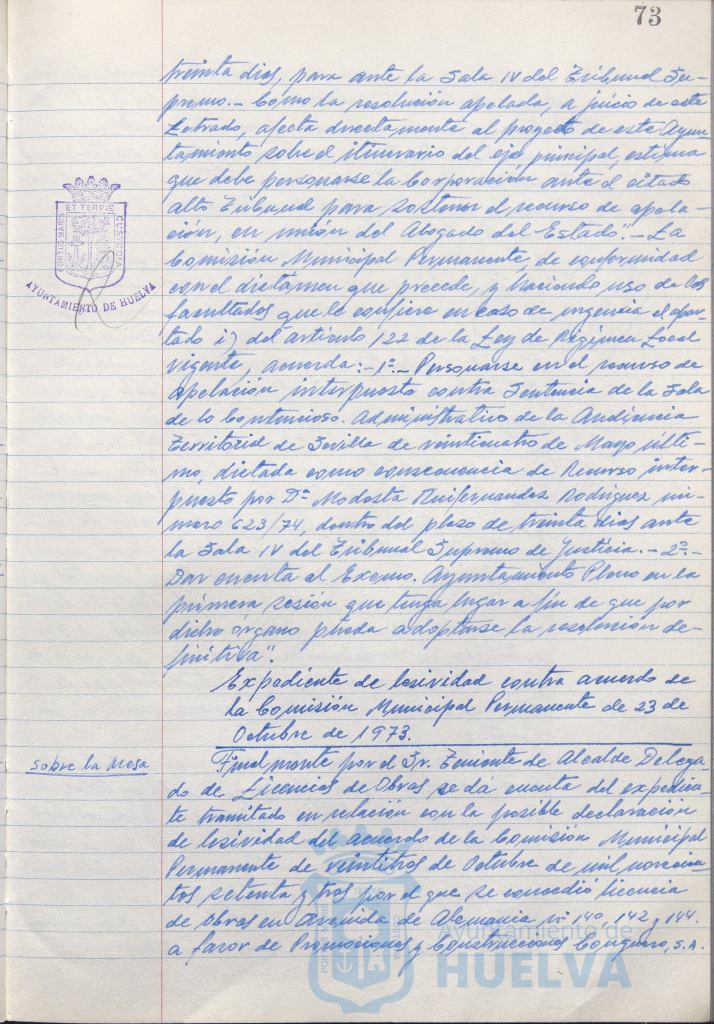 73
treinta días, para ante la Sala IV del Tribunal Su-
premo.- Como la resolución apelada, a juicio de este
Letrado, afecta directamente al proyecto de este Ayun-
tamiento sobre el itinerario del eje principal, estima
que debe personarse la Corporación ante el citado
alto Tribunal para sostener el recurso de apela-
ción, en unión del Abogado del Estado".- La
Comisión Municipal Permanente, de conformidad
con el dictámen que precede, y haciendo uso de las
facultades que le confiere en caso de urgencia el apar-
tado i) del artículo 122 de la Ley de Régimen Local
vigente, acuerda:- 1º.- Personarse en el recurso de
apelación interpuesto contra Sentencia de la Sala
de lo Contencioso-Administrativo de la Audiencia
Territorial de Sevilla de veinticuatro de Mayo últi-
mo, dictada como consecuencia de Recurso inter-
puesto por Dª Modesta Rodríguez nú-
mero 623/74, dentro del plazo de treinta días ante
la Sala IV del Tribunal Supremo de Justicia.- 2º.-
Dar cuenta al Excmo. Ayuntamiento Pleno en la
primera sesión que tenga lugar a fin de que por
dicho órgano pueda adoptarse la resolución de-
finitiva".
Expediente de lesividad contra acuerdo de
la Comisión Municipal Permanente de 23 de
Octubre de 1973.
Sobre la Mesa
Finalmente por el Sr. Teniente de Alcalde Delega-
do de Licencias de Obras se dá cuenta del expedien-
te tramitado en relación con la posible declaración
de lesividad del acuerdo de la Comisión Municipal
Permanente de veintitrés de Octubre de mil novecien-
tos setenta y tres por el que se concedió licencia
de obras en Avenida de Alemania nº 140, 142 y 144
a favor de Promociones y Construcciones Conquero, S.A.
PORTUS MARIS ET TERRE CUSTODIA
AYUNTAMIENTO DE HUELVA
Ayuntamiento de
HUELVA